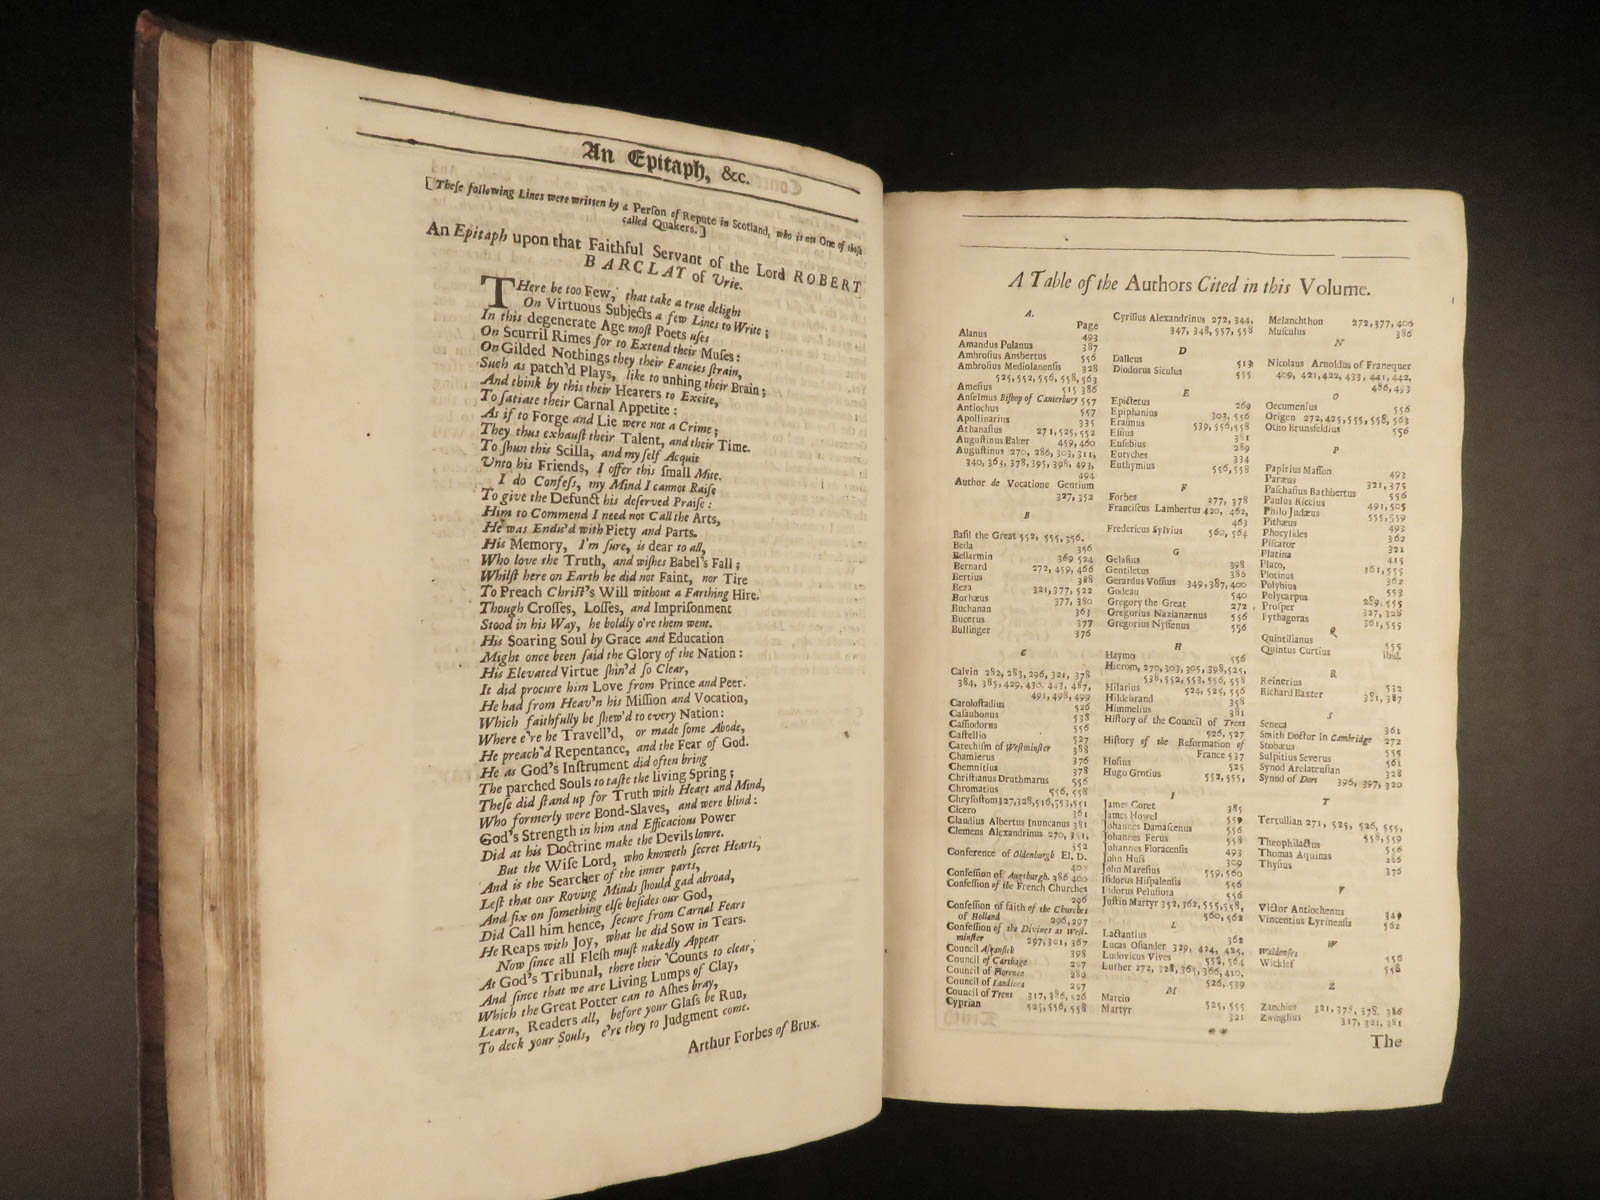 An Epitaph, &c.
[These following Lines were written by a Person of Repute in Scotland, who is not One of those
called Quakers.]
An Epitaph upon that Faithful Servant of the Lord ROBERT
BARCLAY of Vrie.
THere be too Few, that take a true delight
On Virtuous Subjects a few Lines to Write;
In this degenerate Age most Poets uses
On Scurril Rimes for to Extend their Muses:
On Gilded Nothings they their Fancies strain,
Such as patch'd Plays, like to unhing their Brain;
And think by this their Hearers to Excite,
To satiate their Carnal Appetite:
As if to Forge and Lie were not a Crime;
They thus exhaust their Talent, and their Time.
To shun this Scilla, and my self Acquit
Unto his Friends, I offer this small Mite.
I do Confess, my Mind I cannot Raise
To give the Defunct his deserved Praise:
Him to Commend I need not Call the Arts,
He was Endu'd with Piety and Parts.
His Memory, I'm sure, is dear to all,
Who love the Truth, and wishes Babel's Fall;
Whilst here on Earth he did not Faint, nor Tire
To Preach Christ's Will without a Farthing Hire.
Though Crosses, Losses, and Imprisonment
Stood in his Way, he boldly o're them went.
His Soaring Soul by Grace and Education
Might once been said the Glory of the Nation:
His Elevated Virtue shin'd so Clear,
It did procure him Love from Prince and Peer.
He had from Heav'n his Mission and Vocation,
Which faithfully he shew'd to every Nation:
Where e're he Travell'd, or made some Abode,
He preach'd Repentance, and the Fear of God.
He as God's Instrument did often bring
The parched Souls to taste the living Spring;
These did stand up for Truth with Heart and Mind,
Who formerly were Bond-Slaves, and were blind:
God's Strength in him and Efficacious Power
Did at his Doctrine make the Devils lowre.
But the Wise Lord, who knoweth secret Hearts,
And is the Searcher of the inner parts,
Lest that our Roving Minds should gad abroad,
And fix on something else besides our God,
Did Call him hence, secure from Carnal Fears
He Reaps with Joy, what he did Sow in Tears.
Now since all Flesh must nakedly Appear
At God's Tribunal, there their Counts to clear,
And since that we are Living Lumps of Clay,
Which the Great Potter can to Ashes bray,
Learn, Readers all, before your Glass be Run,
To deck your Souls, e're they to Judgment come.
Arthur Forbes of Brux.
A Table of the Authors Cited in this Volume.
A.
Page
Alanus 493
Amandus Polanus 387
Ambrosius Ansbertus 556
Ambrosius Mediolanensis 328
525, 552, 556, 558, 563
Amesius 515 386
Anselmus Bishop of Canterbury 557
Antiochus 557
Apollinarius 335
Athanasius 271, 525, 552
Augustinus Baker 459, 460
Augustinus 270, 286, 303, 311,
340, 363, 378, 395, 398, 493,
494
Author de Vocatione Gentium
327, 352
B
Basil the Great 552, 555, 356.
Beda 356
Bellarmin 369 524
Bernard 272, 459, 466
Bertius 388
Beza 321, 377, 522
Borhæus 377, 380
Buchanan 363
Bucerus 377
Bullinger 376
C
Calvin 282, 283, 296, 321, 378
384, 385, 429, 430, 443, 487,
491, 498, 499
Carolostadius 526
Casaubonus 538
Cassiodorus 556
Castellio 527
Catechism of Westminster 388
Chamierus 376
Chemnitius 378
Christianus Druthmarus 556
Chromatius 556, 558
Chrysostom 327, 328, 516, 353, 551
Cicero 361
Claudius Albertus Inuncanus 381
Clemens Alexandrinus 270, 351,
352
Conference of Oldenburgh El. D.
400
Confession of Augsburgh. 386 460
Confession of the French Churches
296
Confession of faith of the Churches
of Holland 296, 297
Confession of the Divines at West-
minster 297, 301, 367
Council 398
Council of Carthage 297
Council of Florence 289
Council of Laodicea 297
Council of Trent 317, 386, 526
Cyprian 525, 556, 558
Cyrillus Alexandrinus 272, 344,
347, 348, 557, 558
D
Dalleus 513
Diodorus Siculus 555
E
Epictetus 269
Epiphanius 303, 556
Erasmus 539, 556, 558
Essius 381
Eusebius 289
Eutyches 334
Euthymius 556, 558
F
Forbes 277, 378
Franciscus Lambertus 420, 462,
463
Fredericus Sylvius 560, 564
G
Gelasius 398
Gentiletus 386
Gerardus Vossius 349, 387, 400
Godeau 540
Gregory the Great 272
Gregorius Nazianzenus 556
Gregorius Nyssenus 556
H
Haymo 556
Hierom, 270, 303, 305, 398, 525,
538, 552, 553, 556, 558
Hilarius 524, 525, 556
Hildebrand 358
Himmelius 381
History of the Council of Trent
526, 527
History of the Reformation of
France 537
Hosius 525
Hugo Grotius 552, 555,
I
James Coret 385
James Howel 559
Johannes Damascenus 556
Johannes Ferus 558
Johannes Floracensis 493
John Huss 309
John Maresius 559, 560
Isidorus Hispalensis 556
Isidorus Pelusiota 556
Justin Martyr 352, 362, 555, 558,
560, 562
L
Lactantius 362
Lucas Osiander 329, 424, 425,
Ludovicus Vives 558, 564
Luther 272, 328, 363, 366, 410,
526, 539
M
Marcio 525, 555
Martyr 321
Melanchthon 272, 377, 406
Musculus 386
N
Nicolaus Arnoldus of Franequer
409, 421, 422, 433, 441, 442,
486, 493
O
Oecumenius 556
Origen 272, 425, 555, 558, 563
Otho Brunsfeldius 556
P
Papirius Masson 493
Paræus 321, 375
Paschasius Rathbertus 556
Paulus Riccius 491, 505
Philo Judæus 555, 559
Pithæus 493
Phocylides 362
Piscator 321
Platina 415
Plato, 361, 555
Plotinus 362
Polybius 553
Polycarpus 289, 555
Prosper 327, 328
Pythagoras 361, 555
Q
Quintilianus 555
Quintus Curtius ibid.
R
Reinerius 532
Richard Baxter 381, 387
S
Seneca 361
Smith Doctor in Cambridge 272
Stobæus 555
Sulpitius Severus 561
Synod Arelatensian 328
Synod of Dort 396, 397, 320
T
Tertullian 271, 525, 526, 555,
558, 559
Theophilactus 556
Thomas Aquinas 286
Thysius 376
V
Victor Antiochenus 349
Vincentius Lyrinensis 562
W
Waldenses 556
Wicklef 556
Z
Zanchius 321, 376, 378, 386
Zwinglius 317, 321, 381
**
The